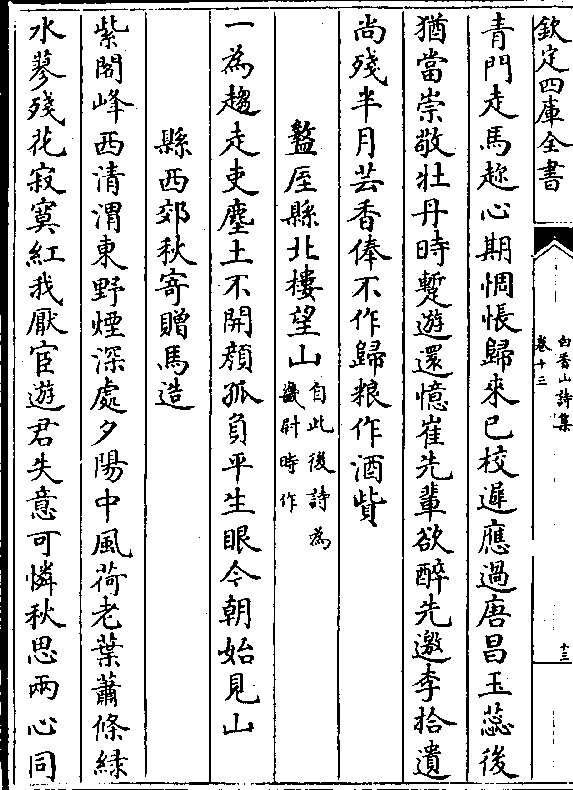 欽定四庫全書
白香山詩集
卷十三
十三
青門走馬趂心期惆悵歸來已校遲應過唐昌玉蘂後
猶當崇敬牡丹時蹔遊還憶崔先輩欲醉先邀李拾遺
尚殘半月芸香俸不作歸粮作酒貲
盩厔縣北樓望山自此後詩為
畿尉時作
一為趨走吏塵土不開顔孤負平生眼今朝始見山
縣西郊秋寄贈馬造
紫閣峰西清渭東野煙深處夕陽中風荷老葉蕭條緑
水蓼殘花寂寞紅我厭宦遊君失意可憐秋思兩心同